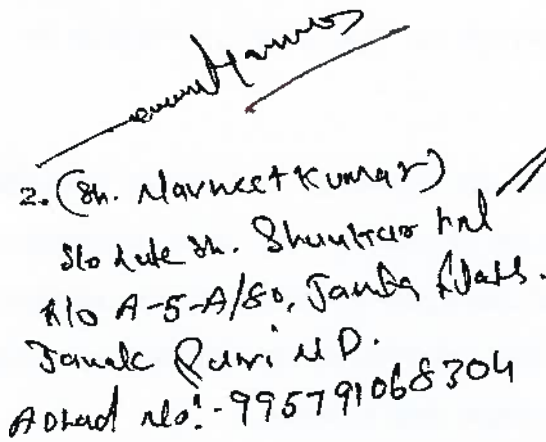 2. (Sh. Navneet Kumar)
S/o Late Sh. Shankar Lal
R/o A-5-A/80, Janta Flats.
Janak Puri N D.
Adhad No:- 995791068304